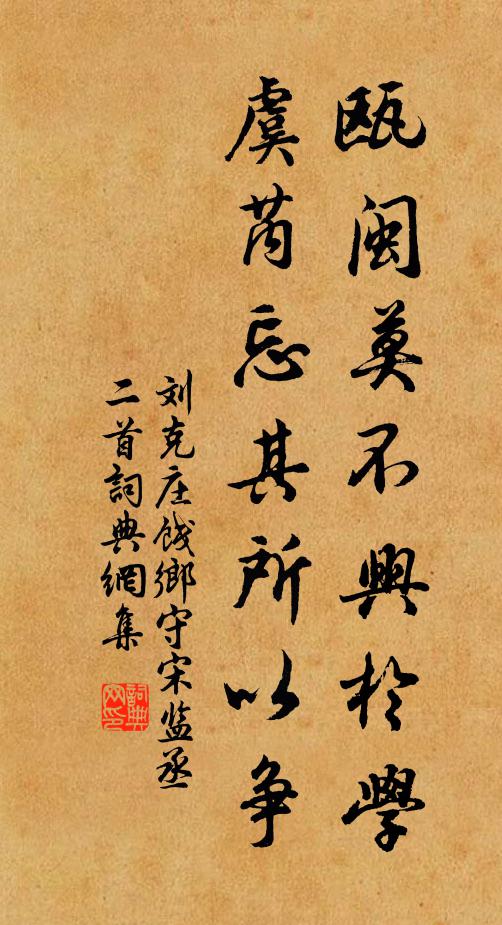 瓯闽莫不興於學
虞芮忘其所以争
刘克庄餞鄉守宋监丞
二首詞典網集
詞典
网印